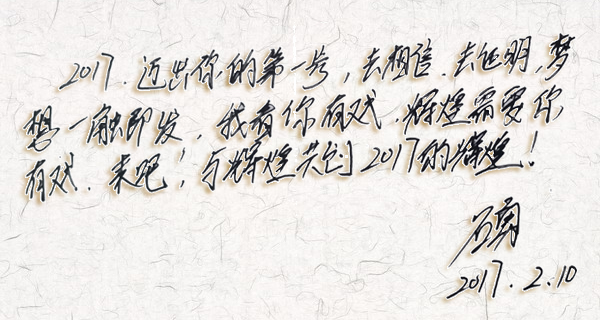 2017.迈出你的第一步,去相信.去证明,梦
想一触即发,我看你有戏.辉煌需要你
有戏.来吧!与辉煌共创2017的辉煌!
石勇
2017.2.10